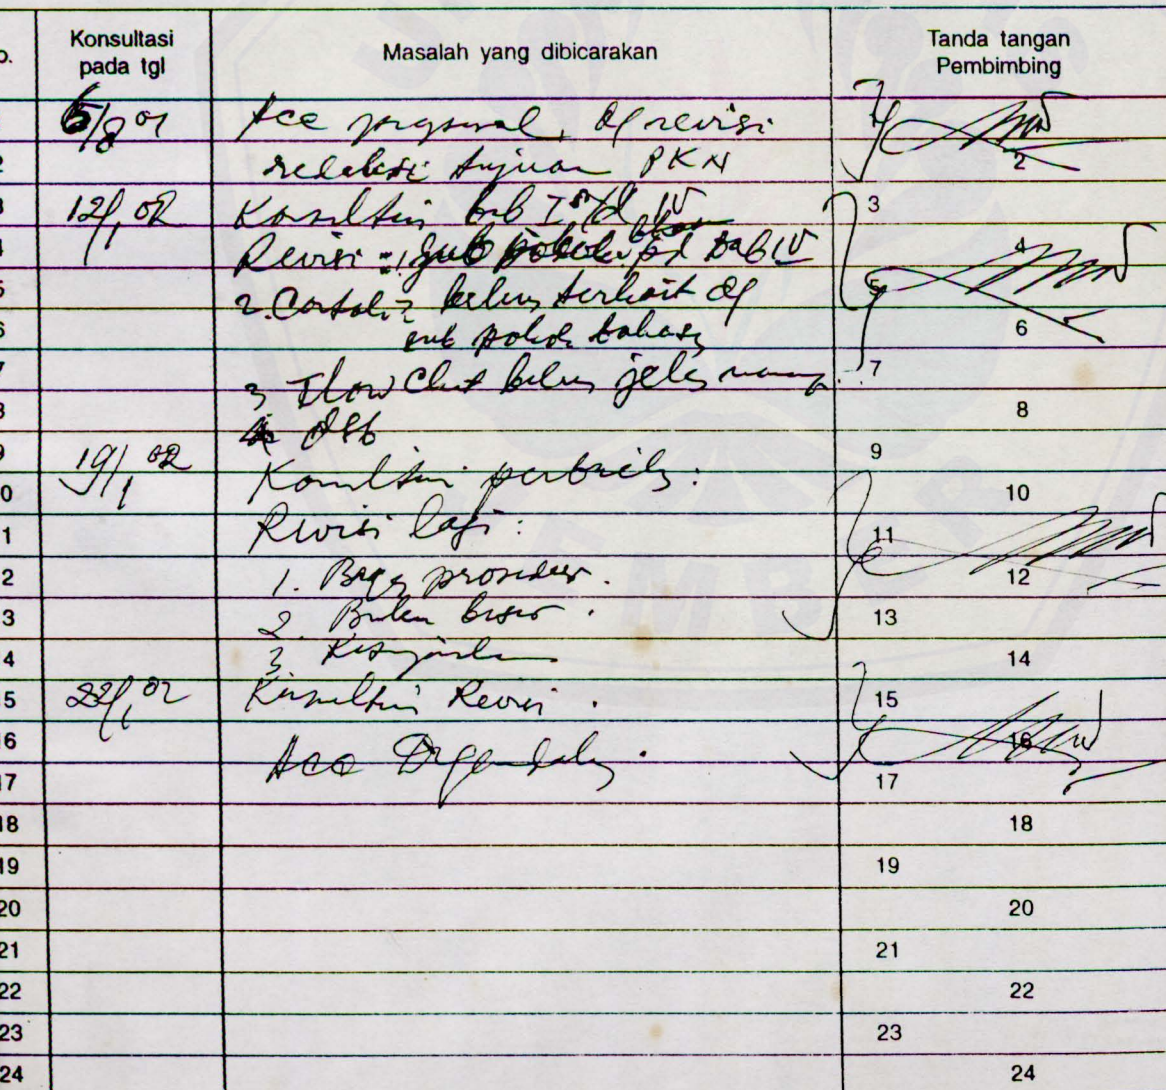 Konsultasi
pada tgl
Masalah yang dibicarakan
Tanda tangan
Pembimbing
6/8 01
Acc proposal, dg revisi
redaksi tujuan PKN
2
12/1 02
Konsultasi bab I s/d IV
3
Revisi : 1. sub pokok bhsan pd bab IV
4
2. Contoh2 belum terkait dg
5
sub pokok bahasan
6
3 Flow Chart belum jelas
7
8
4 dll
9
19/1 02
Konsultasi perbaikan :
10
Revisi lagi :
11
1. Bagan prosedur .
12
2. .
13
3 Kesimpulan
14
22/1 02
Konsultasi Revisi .
15
16
Acc Digandakan .
17
18
18
19
19
20
20
21
21
22
22
23
23
24
24